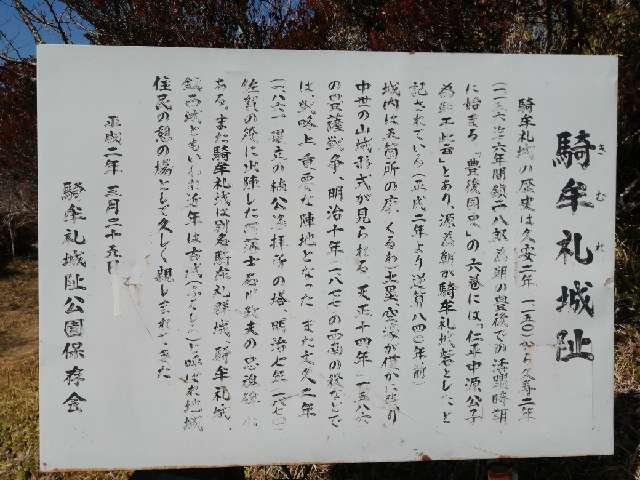 騎牟礼城址
きむれ
騎牟礼城の歴史は久安二年(一一五〇)から久寿二年
(一一五六)迄六年間鎮西八郎為朝の豊後での活躍時期
に始まる「豊後国志」の六巻には「仁平中源公子
為朝工此岳」とあり、源為朝が騎牟礼城砦としたと
記されている(平成二年より逆算八四〇年前)
城内は五箇所の廓、くるわ(土塁、空濠が僅かに残り)
中世の山城形式が見られる 天正十四年(一五八六)
の豊薩戦争、明治十年(一八七七)の西南の役などで
は、戦略上重要な陣地となった また文久二年
(一八六二)建立の禎公遥拝所の塔、明治七年(一八七四)
佐賀の役に出陣した岡藩士
ある。また騎牟礼城は別名騎牟礼群城、騎牟礼城、
鎮西城ともいわれ近年は古城(ふるじょ)と呼ばれ地域
住民の憩の場として久しく親しまれてきた
平成二年 三月二十五日
騎牟礼城址公園保存会